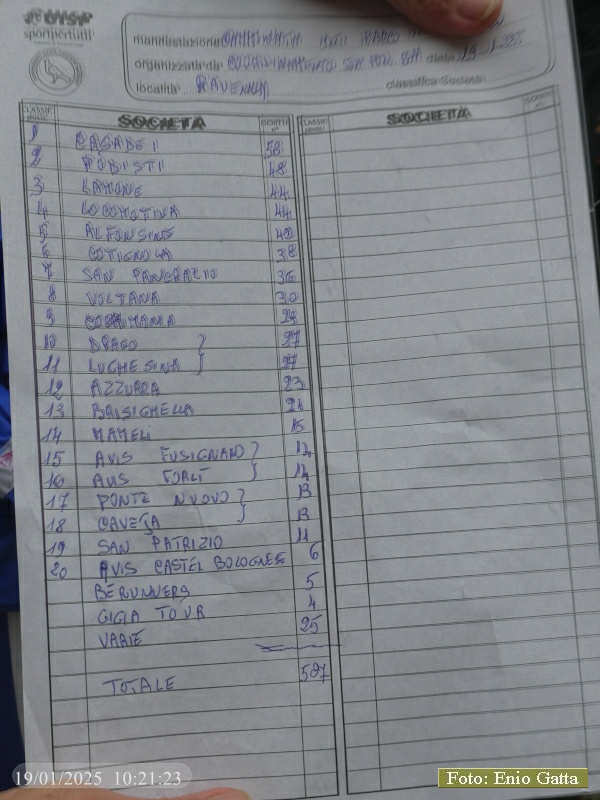 UISP
sportpertutti
manifestazione CAMMINATA DEL
organizzata da COORDINAMENTO data 19.1.25
località RAVENNA classifica Società
CLASSIF. SOCIETÀ ISCRITTI n° CLASSIF. SOCIETÀ
1 CASADEI 58
2 PODISTI 48
3 LAMONE 44
4 LOCOMOTIVA 44
5 ALFONSINE 42
6 COTIGNOLA 38
7 SAN PANCRAZIO 36
8 VOLTANA 30
9
10 DRAGO } 27
11 LUGHESINA } 27
12 AZZURRA 23
13 BRISIGHELLA 21
14 MAMELI 15
15 AVIS FUSIGNANO } 14
16 AVIS FORLÌ } 14
17 PONTE NUOVO } 13
18 CAVEJA } 13
19 SAN PATRIZIO 11
20 AVIS CASTEL BOLOGNESE 6
BERUNNERS 5
GIGIA TOUR 4
VARIE 25
TOTALE 587
19/01/2025 10:21:23
Foto: Enio Gatta